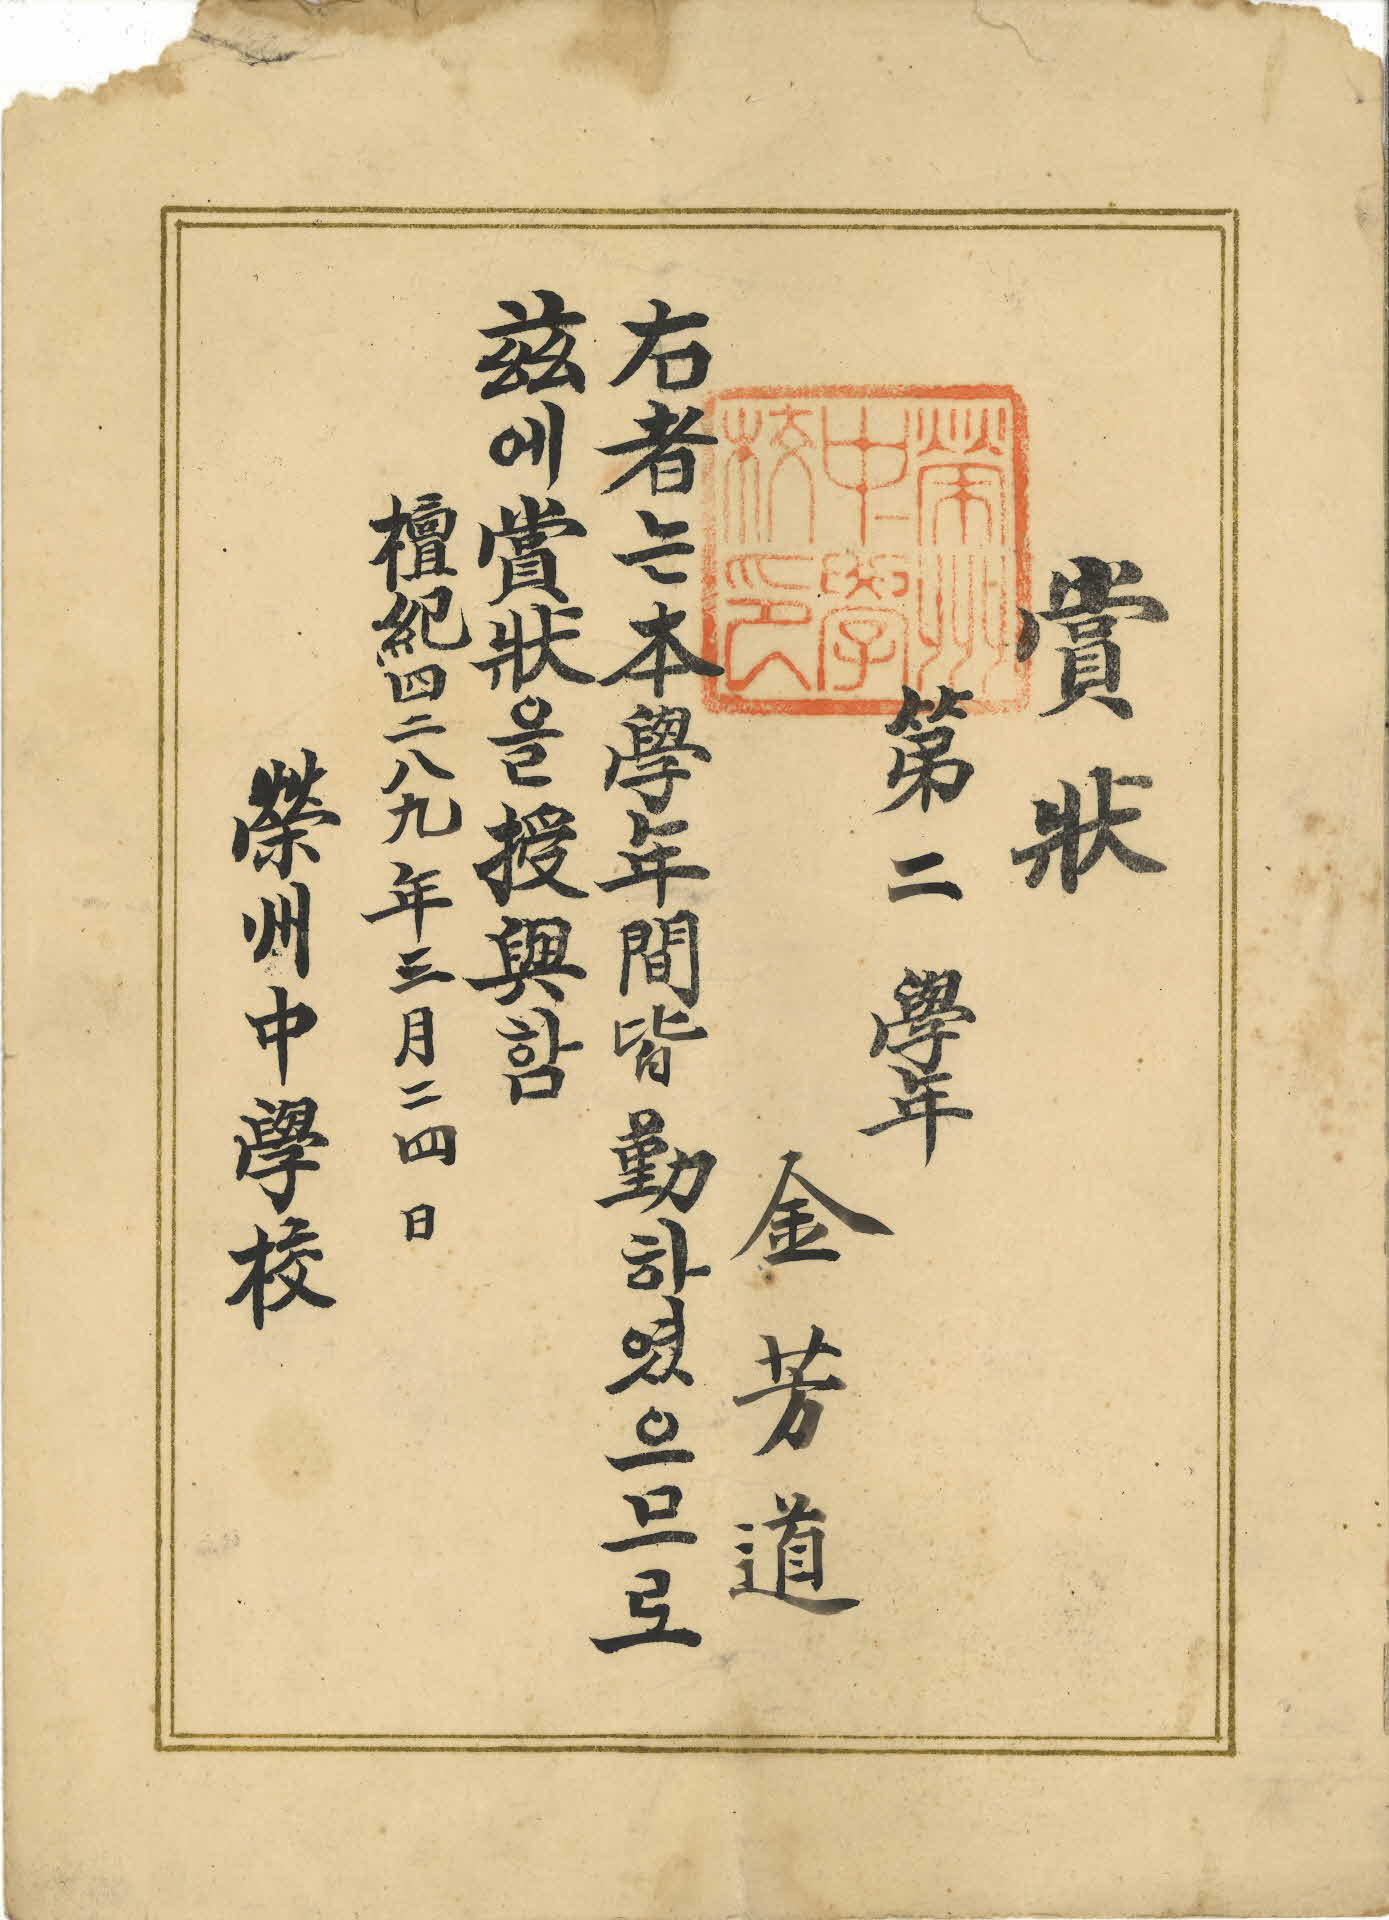 賞狀
第二學年
金芳道
右者는本學年間皆勤하였으므로
玆에賞狀을授與함
檀紀四二八九年三月二四日
榮州中學校
榮州
中學
校印